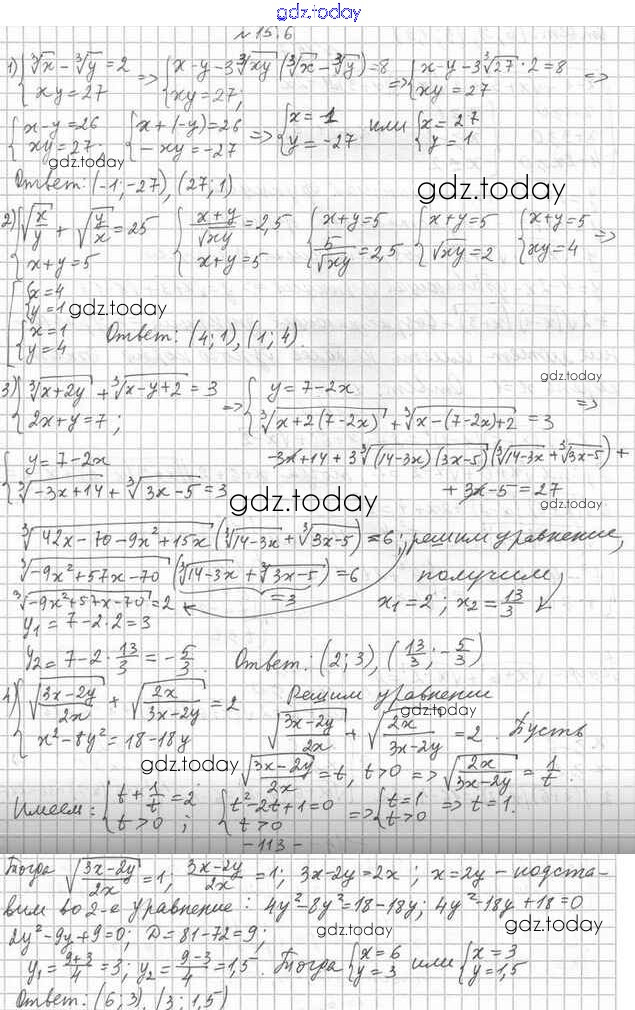 gdz.today
№ 15.6
1) {∛x − ∛y = 2; xy = 27 => {x−y−3∛xy (∛x − ∛y) = 8; xy = 27; => {x−y−3∛27 · 2 = 8; xy = 27 =>
{x−y=26; xy=27; {x+(−y)=26; −xy=−27 => {x=−1; y=−27 или {x=27; y=1
gdz.today
Ответ: (−1; −27), (27; 1)
gdz.today
2) {√(x/y) + √(y/x) = 25; x+y=5 {(x+y)/√xy = 2,5; x+y=5 {x+y=5; 5/√xy = 2,5 {x+y=5; √xy=2 {x+y=5; xy=4 =>
[{x=4; y=1; {x=1; y=4
gdz.today
Ответ: (4; 1), (1; 4).
gdz.today
3) {∛(x+2y) + ∛(x−y+2) = 3; 2x+y=7; => {y=7−2x; ∛(x+2(7−2x)) + ∛(x−(7−2x)+2) = 3 =>
{y=7−2x; ∛(−3x+14) + ∛(3x−5) = 3
−3x+14+3∛((14−3x)(3x−5)) (∛(14−3x) + ∛(3x−5)) +
+ 3x−5 = 27
gdz.today
∛(42x−70−9x²+15x) (∛(14−3x) + ∛(3x−5)) = 6; решим уравнение,
∛(−9x²+57x−70) (∛(14−3x) + ∛(3x−5)) = 6 получим
=3
∛(−9x²+57x−70) = 2 x₁=2; x₂=13/3
y₁ = 7−2·2 = 3
y₂ = 7−2·13/3 = −5/3. Ответ: (2; 3), (13/3; −5/3)
4) {√((3x−2y)/2x) + √(2x/(3x−2y)) = 2; x²−8y²=18−18y Решим уравнение
√((3x−2y)/2x) + √(2x/(3x−2y)) = 2. Пусть
gdz.today
gdz.today
√((3x−2y)/2x) = t, t>0 => √(2x/(3x−2y)) = 1/t.
Имеем: {t + 1/t = 2; t>0; {t²−2t+1=0; t>0 => {t=1; t>0 => t=1.
gdz.today
− 113 −
Тогда √((3x−2y)/2x) = 1; (3x−2y)/2x = 1; 3x−2y=2x; x=2y − подста-
вим во 2-е уравнение: 4y²−8y²=18−18y; 4y²−18y+18=0
gdz.today
2y²−9y+9=0; D=81−72=9;
y₁ = (9+3)/4 = 3; y₂ = (9−3)/4 = 1,5. Тогда {x=6; y=3 или {x=3; y=1,5
gdz.today
Ответ: (6; 3), (3; 1,5)